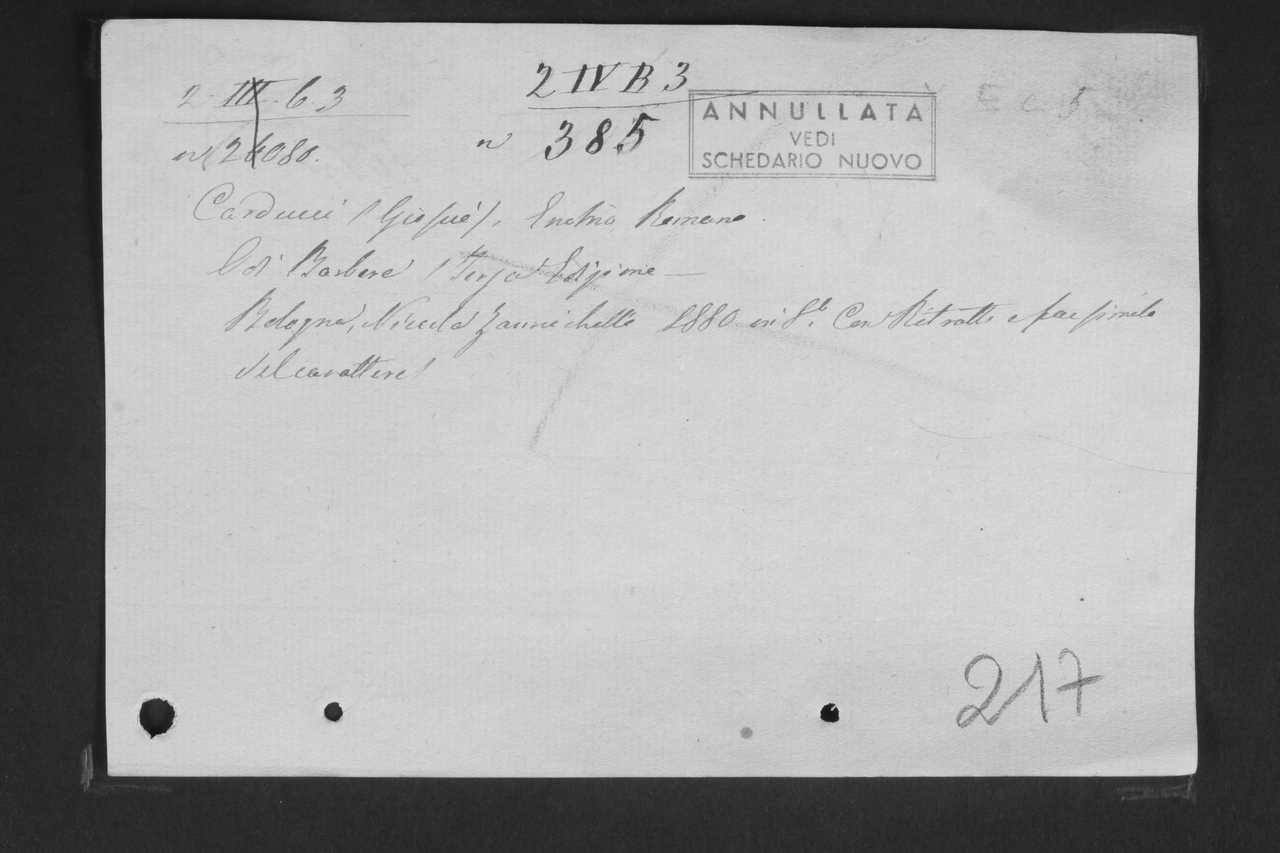 2 - III - 6. 3
n 24080.
2 IV B 3
n 385
ANNULLATA
VEDI
SCHEDARIO NUOVO
Carducci (Giosuè). Enotrio Romano.
Odi Barbere (Terza Edizione —
Bologna, Nicola Zannichelli 1880 in 8.° Con Ritratto e facsimile
del carattere)
217